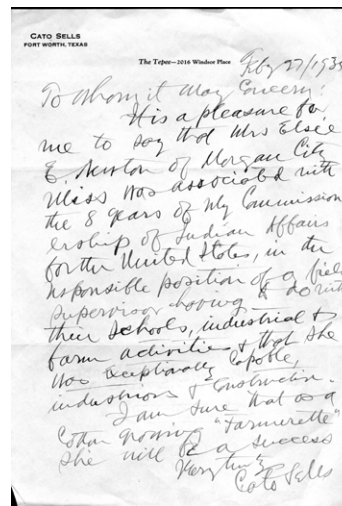 CATO SELLS
FORT WORTH, TEXAS
The Tepee—2016 Windsor Place
Feby 27/1935
To Whom it May Concern:
It is a pleasure for
me to say that Mrs Elsie
E. Newton of Morgan City
Miss was associated with
the 8 years of my Commission
ership of Indian Affairs
for the United States, in the
responsible position of a field
supervisor having to do with
their schools, industrial &
farm activities & that she
was exceptionally capable,
industrious & constructive.
I am sure that as a
Cotton growing "Farmerette"
she will be a success
Very truly
Cato Sells